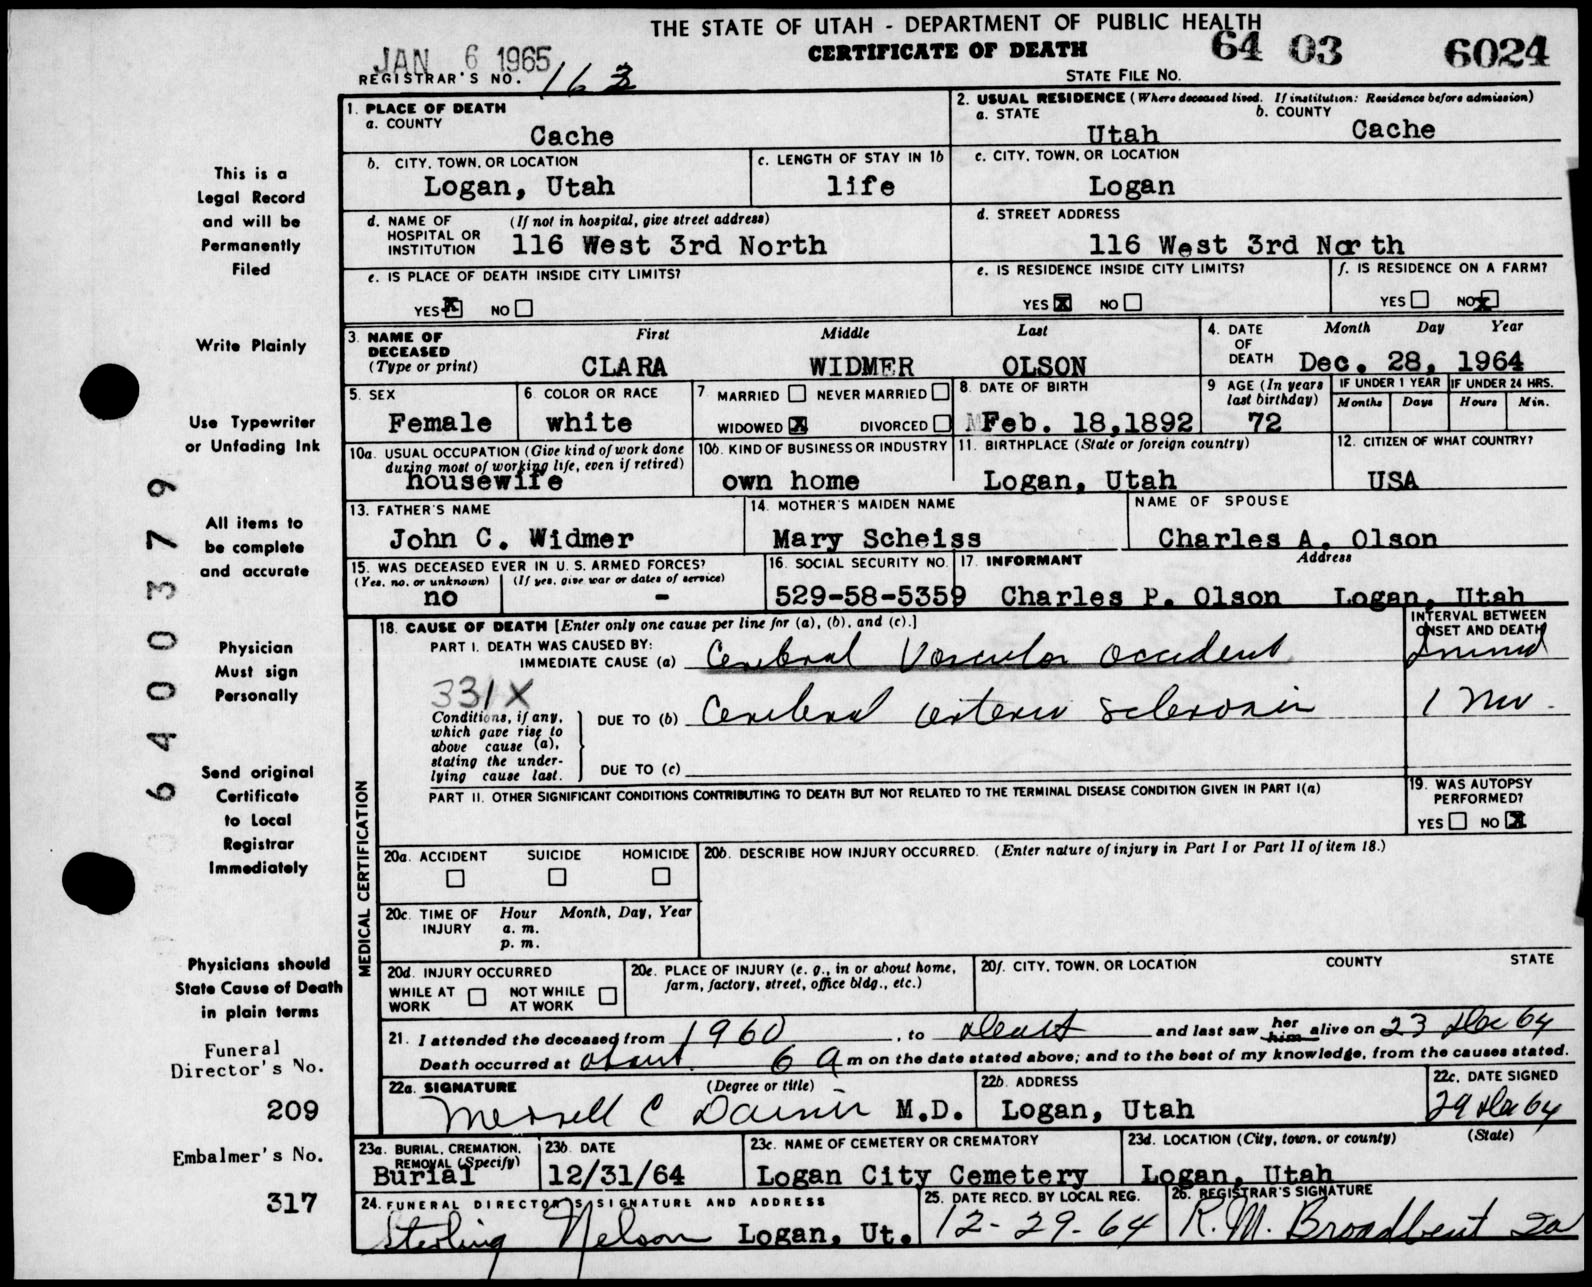 THE STATE OF UTAH - DEPARTMENT OF PUBLIC HEALTH
CERTIFICATE OF DEATH
64 03 6024
JAN 6 1965
REGISTRAR'S NO. 163
STATE FILE NO.
1. PLACE OF DEATH
a. COUNTY
Cache
2. USUAL RESIDENCE (Where deceased lived. If institution: Residence before admission)
a. STATE
Utah
b. COUNTY
Cache
b. CITY, TOWN, OR LOCATION
Logan, Utah
c. LENGTH OF STAY IN 1b
life
c. CITY, TOWN, OR LOCATION
Logan
d. NAME OF HOSPITAL OR INSTITUTION
(If not in hospital, give street address)
116 West 3rd North
d. STREET ADDRESS
116 West 3rd North
e. IS PLACE OF DEATH INSIDE CITY LIMITS?
YES X NO
e. IS RESIDENCE INSIDE CITY LIMITS?
YES X NO
f. IS RESIDENCE ON A FARM?
YES NO X
3. NAME OF DECEASED (Type or print)
First Middle Last
CLARA WIDMER OLSON
4. DATE OF DEATH
Month Day Year
Dec. 28, 1964
5. SEX
Female
6. COLOR OR RACE
white
7 MARRIED NEVER MARRIED
WIDOWED X DIVORCED
8. DATE OF BIRTH
Feb. 18,1892
9 AGE (In years last birthday)
72
IF UNDER 1 YEAR
Months Days
IF UNDER 24 HRS.
Hours Min.
10a. USUAL OCCUPATION (Give kind of work done during most of working life, even if retired)
housewife
10b. KIND OF BUSINESS OR INDUSTRY
own home
11. BIRTHPLACE (State or foreign country)
Logan, Utah
12. CITIZEN OF WHAT COUNTRY?
USA
13. FATHER'S NAME
John C. Widmer
14. MOTHER'S MAIDEN NAME
Mary Scheiss
NAME OF SPOUSE
Charles A. Olson
15. WAS DECEASED EVER IN U. S. ARMED FORCES?
(Yes, no, or unknown) (If yes, give war or dates of service)
no -
16. SOCIAL SECURITY NO.
529-58-5359
17. INFORMANT Address
Charles P. Olson Logan, Utah
MEDICAL CERTIFICATION
18. CAUSE OF DEATH [Enter only one cause per line for (a), (b), and (c).]
INTERVAL BETWEEN ONSET AND DEATH
PART I. DEATH WAS CAUSED BY:
IMMEDIATE CAUSE (a) Cerebral Vascular accident
331X
Conditions, if any, which gave rise to above cause (a), stating the underlying cause last.
DUE TO (b) Cerebral arterio sclerosis
DUE TO (c)
PART II. OTHER SIGNIFICANT CONDITIONS CONTRIBUTING TO DEATH BUT NOT RELATED TO THE TERMINAL DISEASE CONDITION GIVEN IN PART I(a)
19. WAS AUTOPSY PERFORMED?
YES NO X
20a. ACCIDENT SUICIDE HOMICIDE
20b. DESCRIBE HOW INJURY OCCURRED. (Enter nature of injury in Part I or Part II of item 18.)
20c. TIME OF INJURY Hour Month, Day, Year
a. m.
p. m.
20d. INJURY OCCURRED
WHILE AT WORK NOT WHILE AT WORK
20e. PLACE OF INJURY (e. g., in or about home, farm, factory, street, office bldg., etc.)
20f. CITY, TOWN, OR LOCATION COUNTY STATE
21. I attended the deceased from 1960, to death and last saw her him alive on 23 Dec 64
Death occurred at about 6 a m on the date stated above; and to the best of my knowledge, from the causes stated.
22a. SIGNATURE (Degree or title)
Merrell C Daines M.D.
22b. ADDRESS
Logan, Utah
22c. DATE SIGNED
29 Dec 64
23a. BURIAL, CREMATION, REMOVAL (Specify)
Burial
23b. DATE
12/31/64
23c. NAME OF CEMETERY OR CREMATORY
Logan City Cemetery
23d. LOCATION (City, town, or county) (State)
Logan, Utah
24. FUNERAL DIRECTOR'S SIGNATURE AND ADDRESS
Sterling Nelson Logan, Ut.
25. DATE RECD. BY LOCAL REG.
12-29-64
26. REGISTRAR'S SIGNATURE
R.M. Broadbent
This is a
Legal Record
and will be
Permanently
Filed
Write Plainly
Use Typewriter
or Unfading Ink
All items to
be complete
and accurate
Physician
Must sign
Personally
Send original
Certificate
to Local
Registrar
Immediately
Physicians should
State Cause of Death
in plain terms
Funeral
Director's No.
209
Embalmer's No.
317
6400379